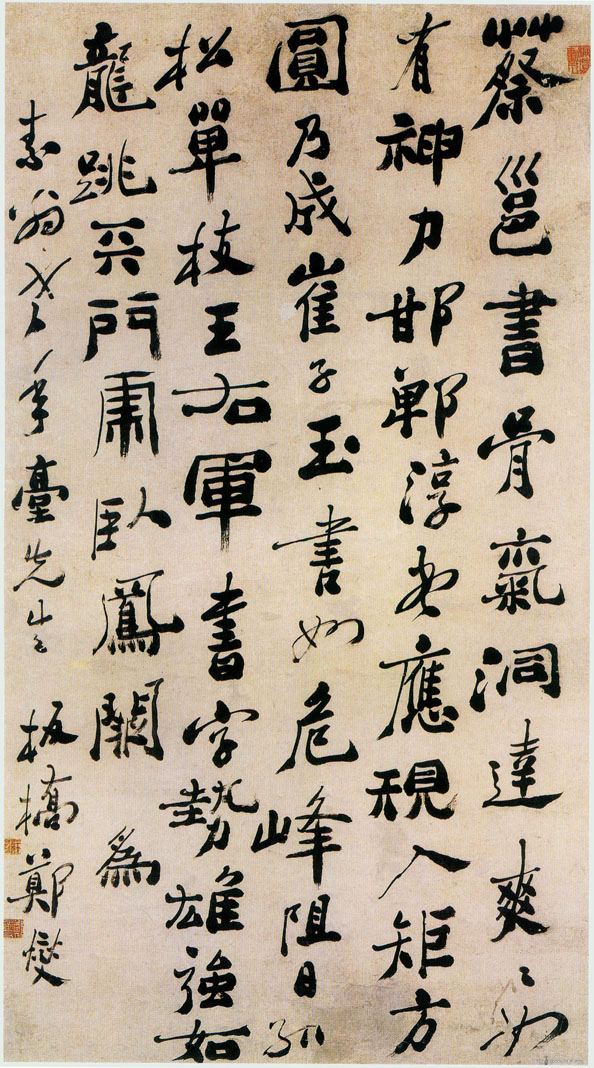 蔡邕書骨氣洞達爽爽如
有神力邯鄲淳書應規入矩方
圓乃成崔子玉書如危峰阻日孤
松單枝王右軍書字勢雄強如
龍跳天門虎臥鳳闕 為
素翁年臺先生 板橋鄭燮